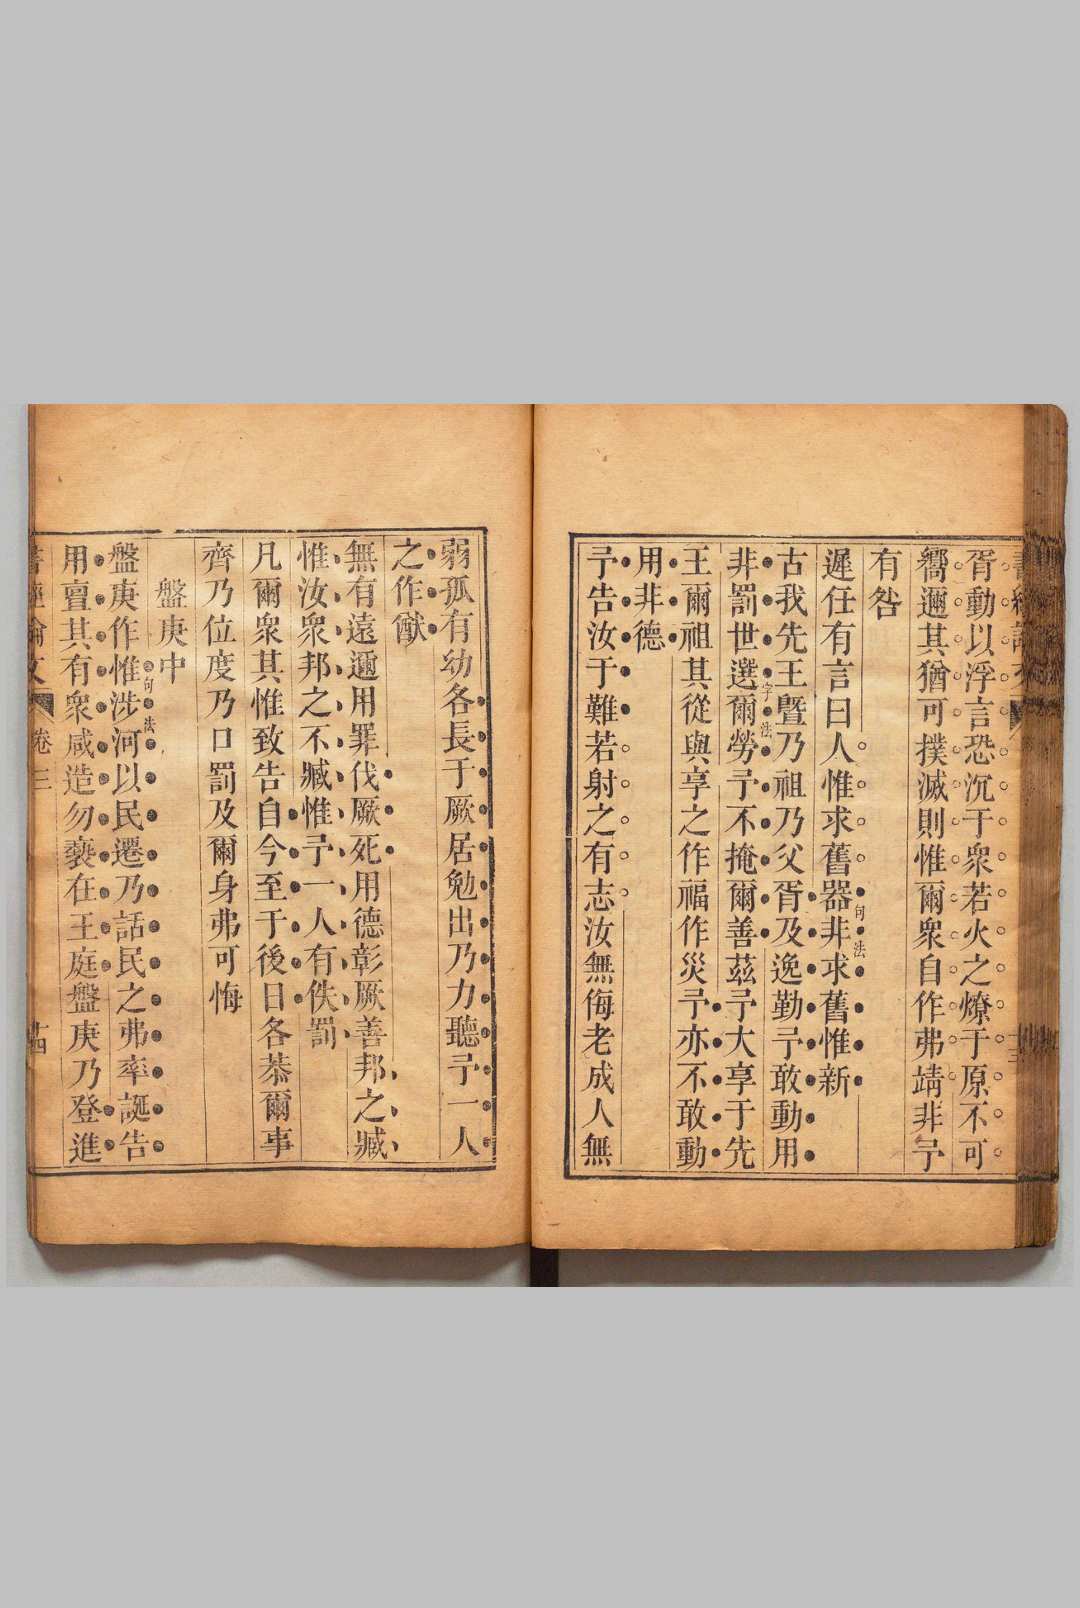 胥動以浮言恐沉于衆若火之燎于原不可
嚮邇其猶可撲滅則惟爾衆自作弗靖非予
有咎
遲任有言曰人惟求舊器非求舊惟新
句法
古我先王曁乃祖乃父胥及逸勤予敢動用
非罰世選爾勞予不掩爾善茲予大享于先
字法
王爾祖其從與享之作福作災予亦不敢動
用非德
予告汝于難若射之有志汝無侮老成人無
弱孤有幼各長于厥居勉出乃力聽予一人
之作猷
無有遠邇用罪伐厥死用德彰厥善邦之臧
惟汝衆邦之不臧惟予一人有佚罰
凡爾衆其惟致告自今至于後日各恭爾事
齊乃位度乃口罰及爾身弗可悔
盤庚中
盤庚作惟涉河以民遷乃話民之弗率誕告
句法
用亶其有衆咸造勿褻在王庭盤庚乃登進
卷三
十四